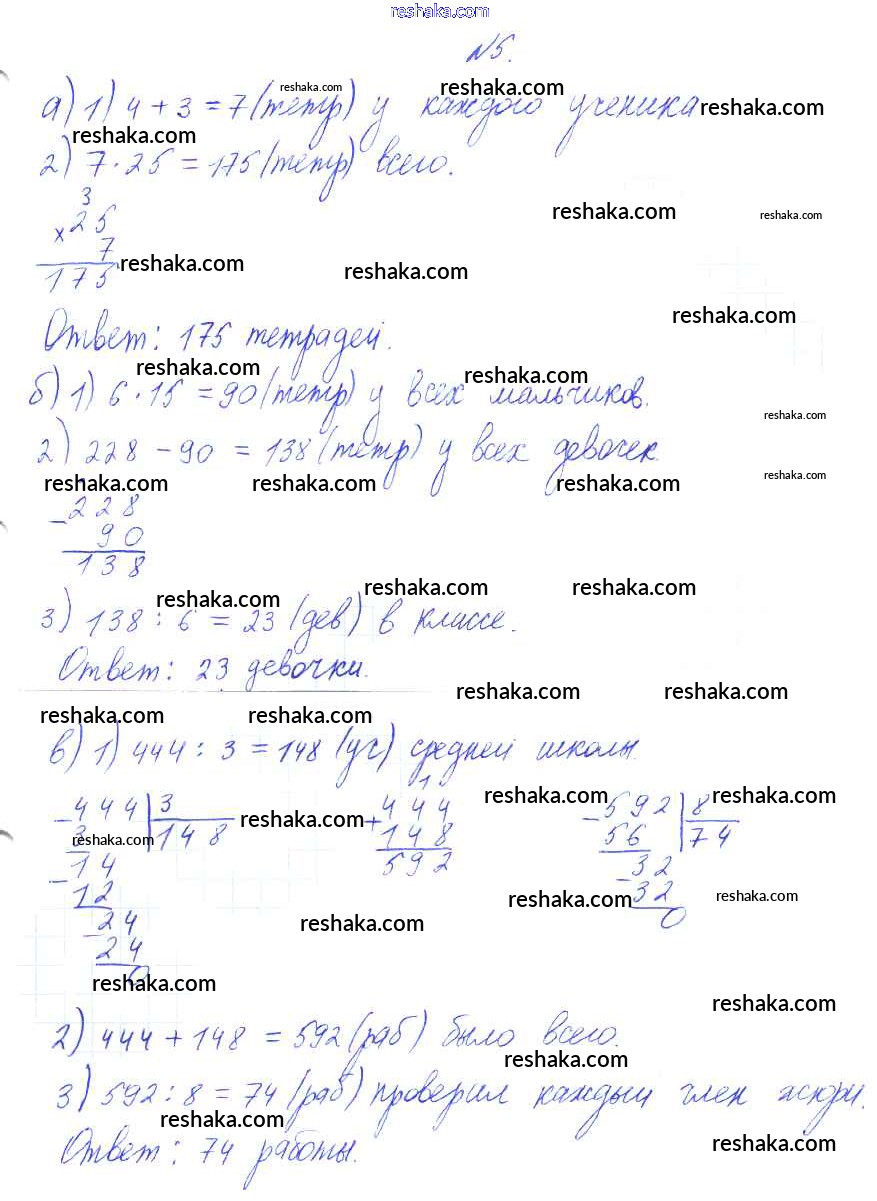 reshaka.com
№5.
а) 1) 4 + 3 = 7 (тетр) у каждого ученика
reshaka.com reshaka.com reshaka.com
reshaka.com
2) 7 · 25 = 175 (тетр) всего.
3
× 25
7
175
reshaka.com reshaka.com
reshaka.com reshaka.com
reshaka.com
Ответ: 175 тетрадей.
reshaka.com reshaka.com
б) 1) 6 · 15 = 90 (тетр) у всех мальчиков.
reshaka.com
2) 228 - 90 = 138 (тетр) у всех девочек
reshaka.com reshaka.com reshaka.com reshaka.com
- 228
90
138
reshaka.com reshaka.com reshaka.com
3) 138 : 6 = 23 (дев) в классе.
Ответ: 23 девочки.
reshaka.com reshaka.com
reshaka.com reshaka.com
в) 1) 444 : 3 = 148 (уч) средней школы.
- 444 | 3
3 148
- 14
12
- 24
24
0
1
+ 444
148
592
- 592 | 8
56 74
- 32
32
0
reshaka.com reshaka.com reshaka.com
reshaka.com
reshaka.com reshaka.com
reshaka.com
reshaka.com
reshaka.com
2) 444 + 148 = 592 (раб) было всего.
reshaka.com
3) 592 : 8 = 74 (раб) проверил каждый член жюри.
reshaka.com
Ответ: 74 работы.
reshaka.com